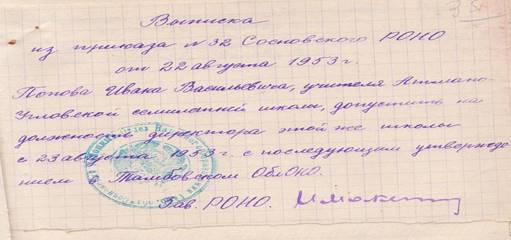 Выписка
из приказа №32 Сосновского РОНО
от 22 августа 1953 г.
Попова Ивана Васильевича, учителя Атмано-
Угловской семилетней школы, допустить на
должность директора этой же школы
с 23 августа 1953 г. с последующим утвержде
нием Тамбовском ОблОНО.
Зав. РОНО.